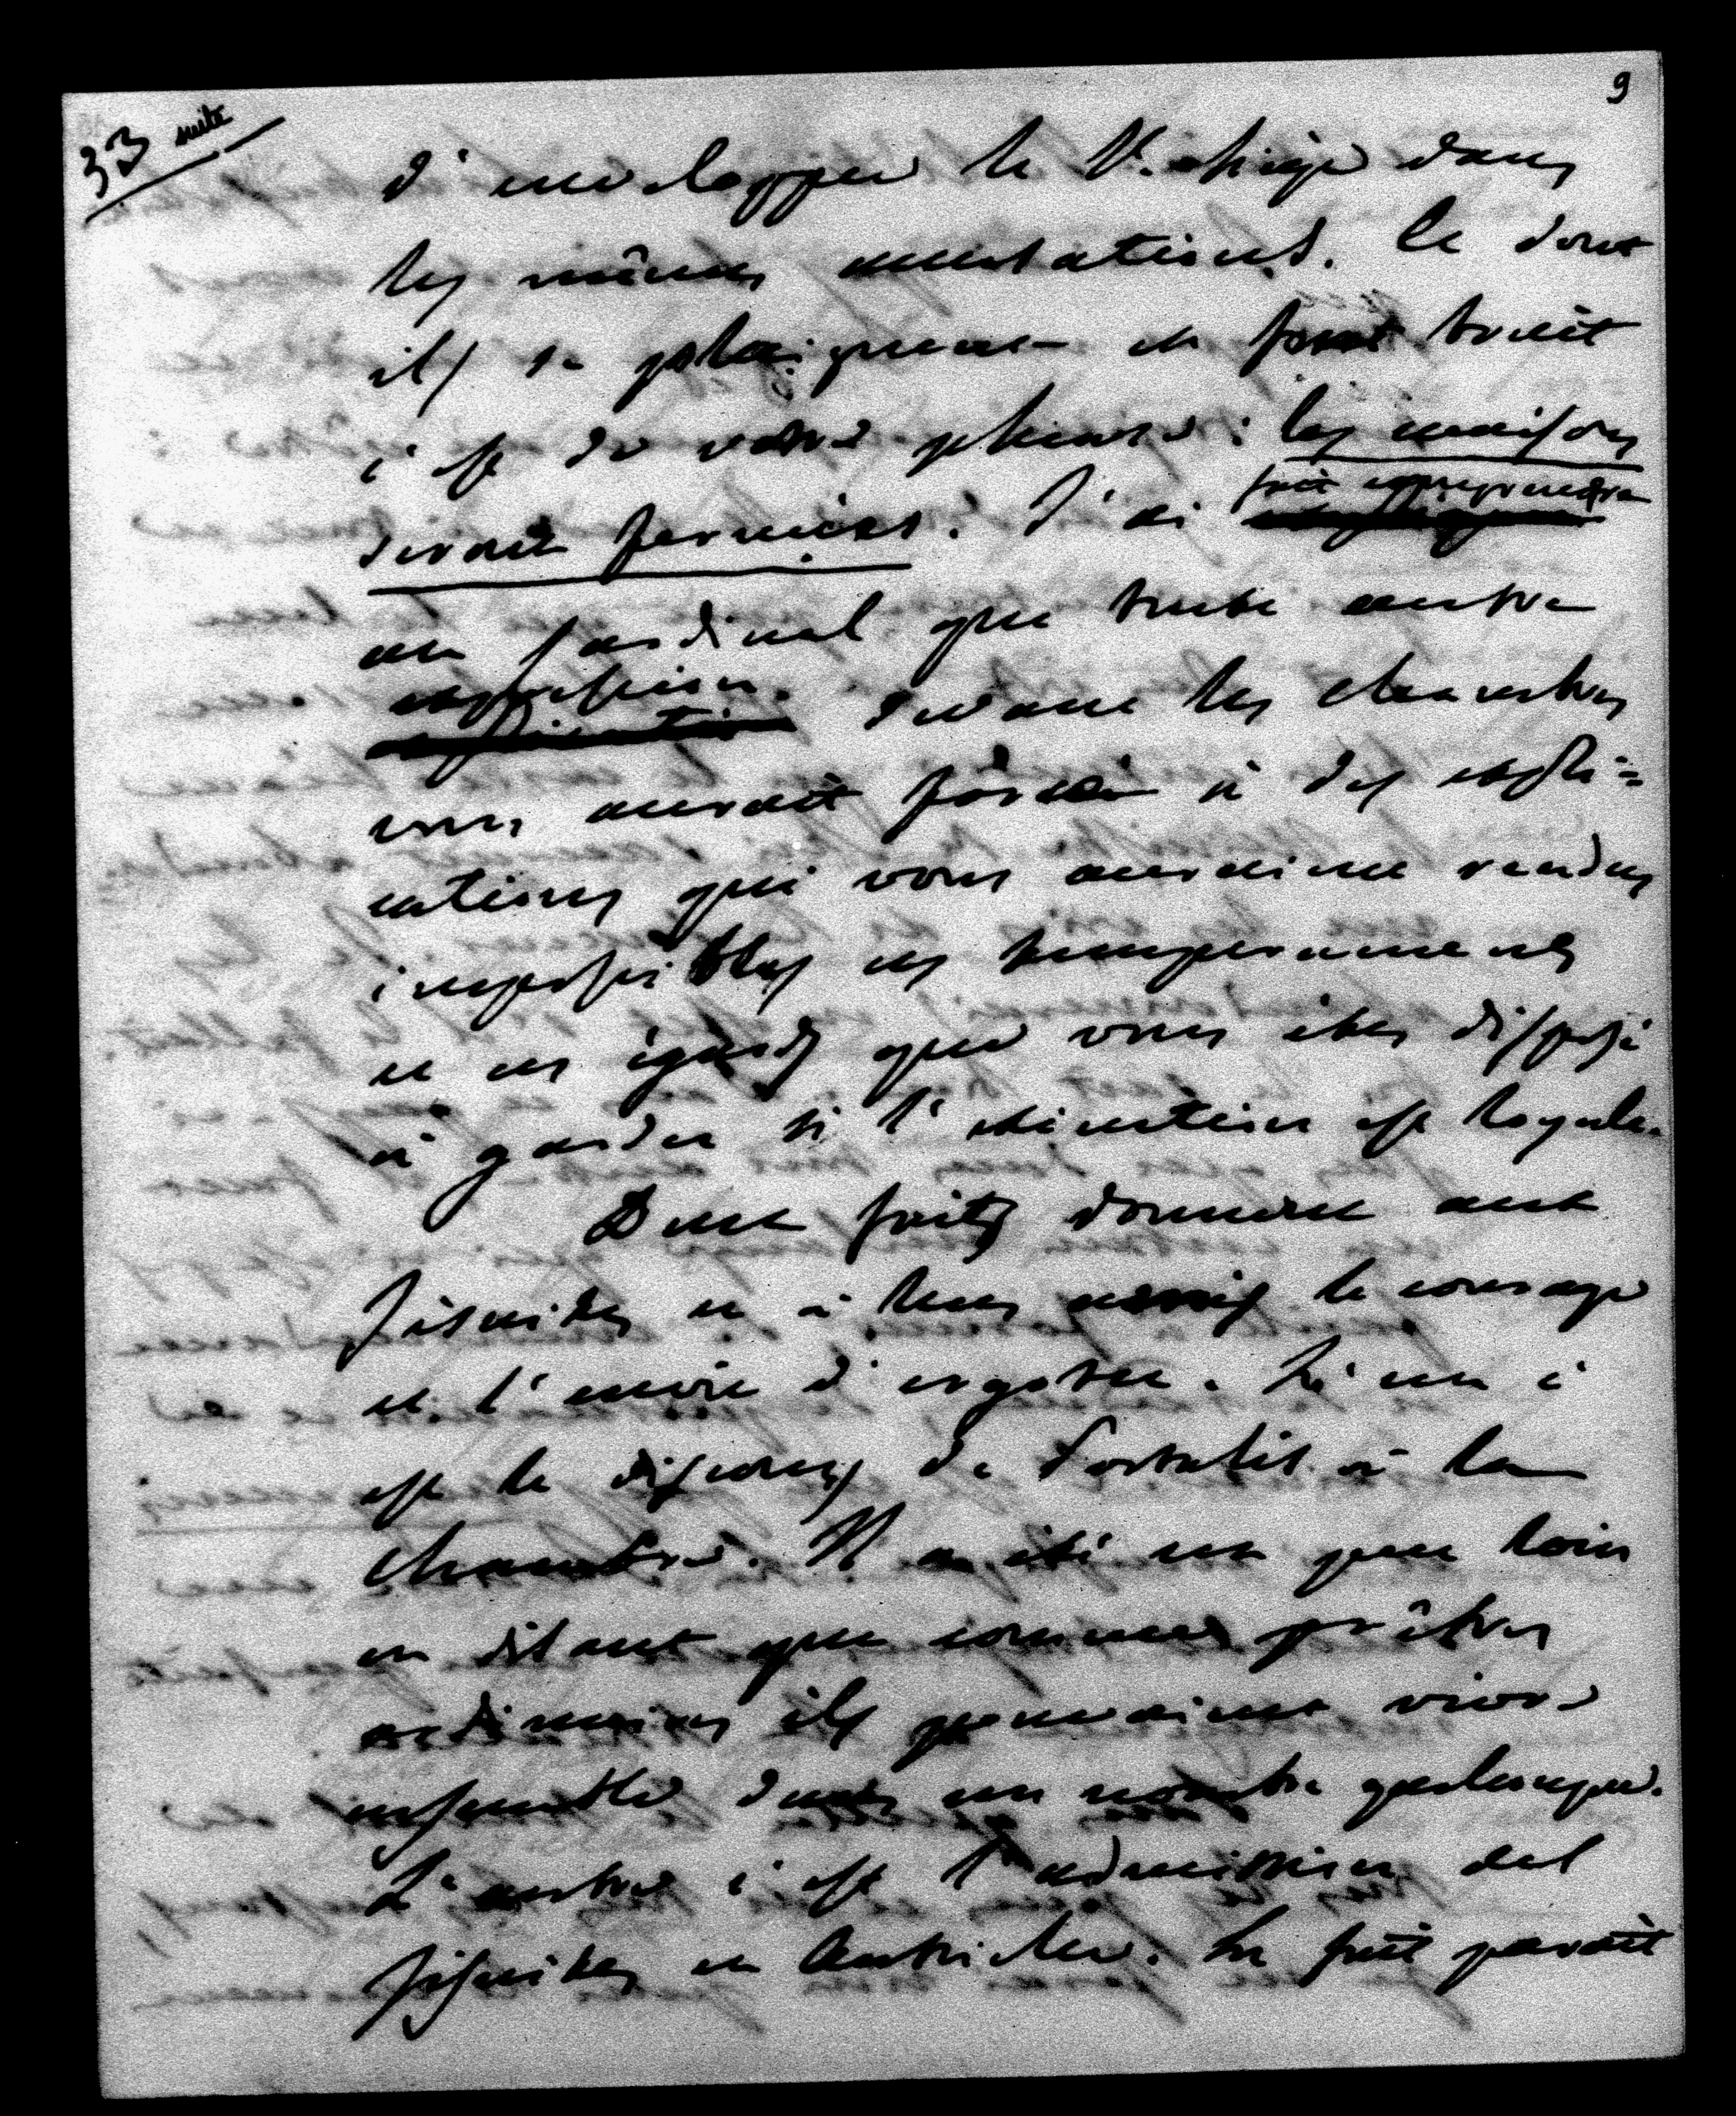 9
33 suite
d'envelopper le St. Siège dans
les mêmes accusations. Ce dont
ils se plaignent et font bruit
c'est de votre phrase : les maisons
seront fermées. J'ai fait comprendre
au Cardinal que toute autre
expression devant les chambres
vous aurait forcé à des expli=
cations qui vous auraient rendus
impossibles ces temperamens
et ces égards que vous êtes disposé
à garder si l'exécution est loyale.
Deux faits donnent aux
Jésuites et à leurs amis le courage
et l'envie d'ergoter. L'un c'
est le discours de Portalis à la
Chambre. Il a été un peu loin
en disant que comme prêtres
ordinaires ils pouvaient vivre
ensemble dans un nombre quelconque.
L'autre c'est l'admission des
Jésuites en Autriche. Le fait paraît